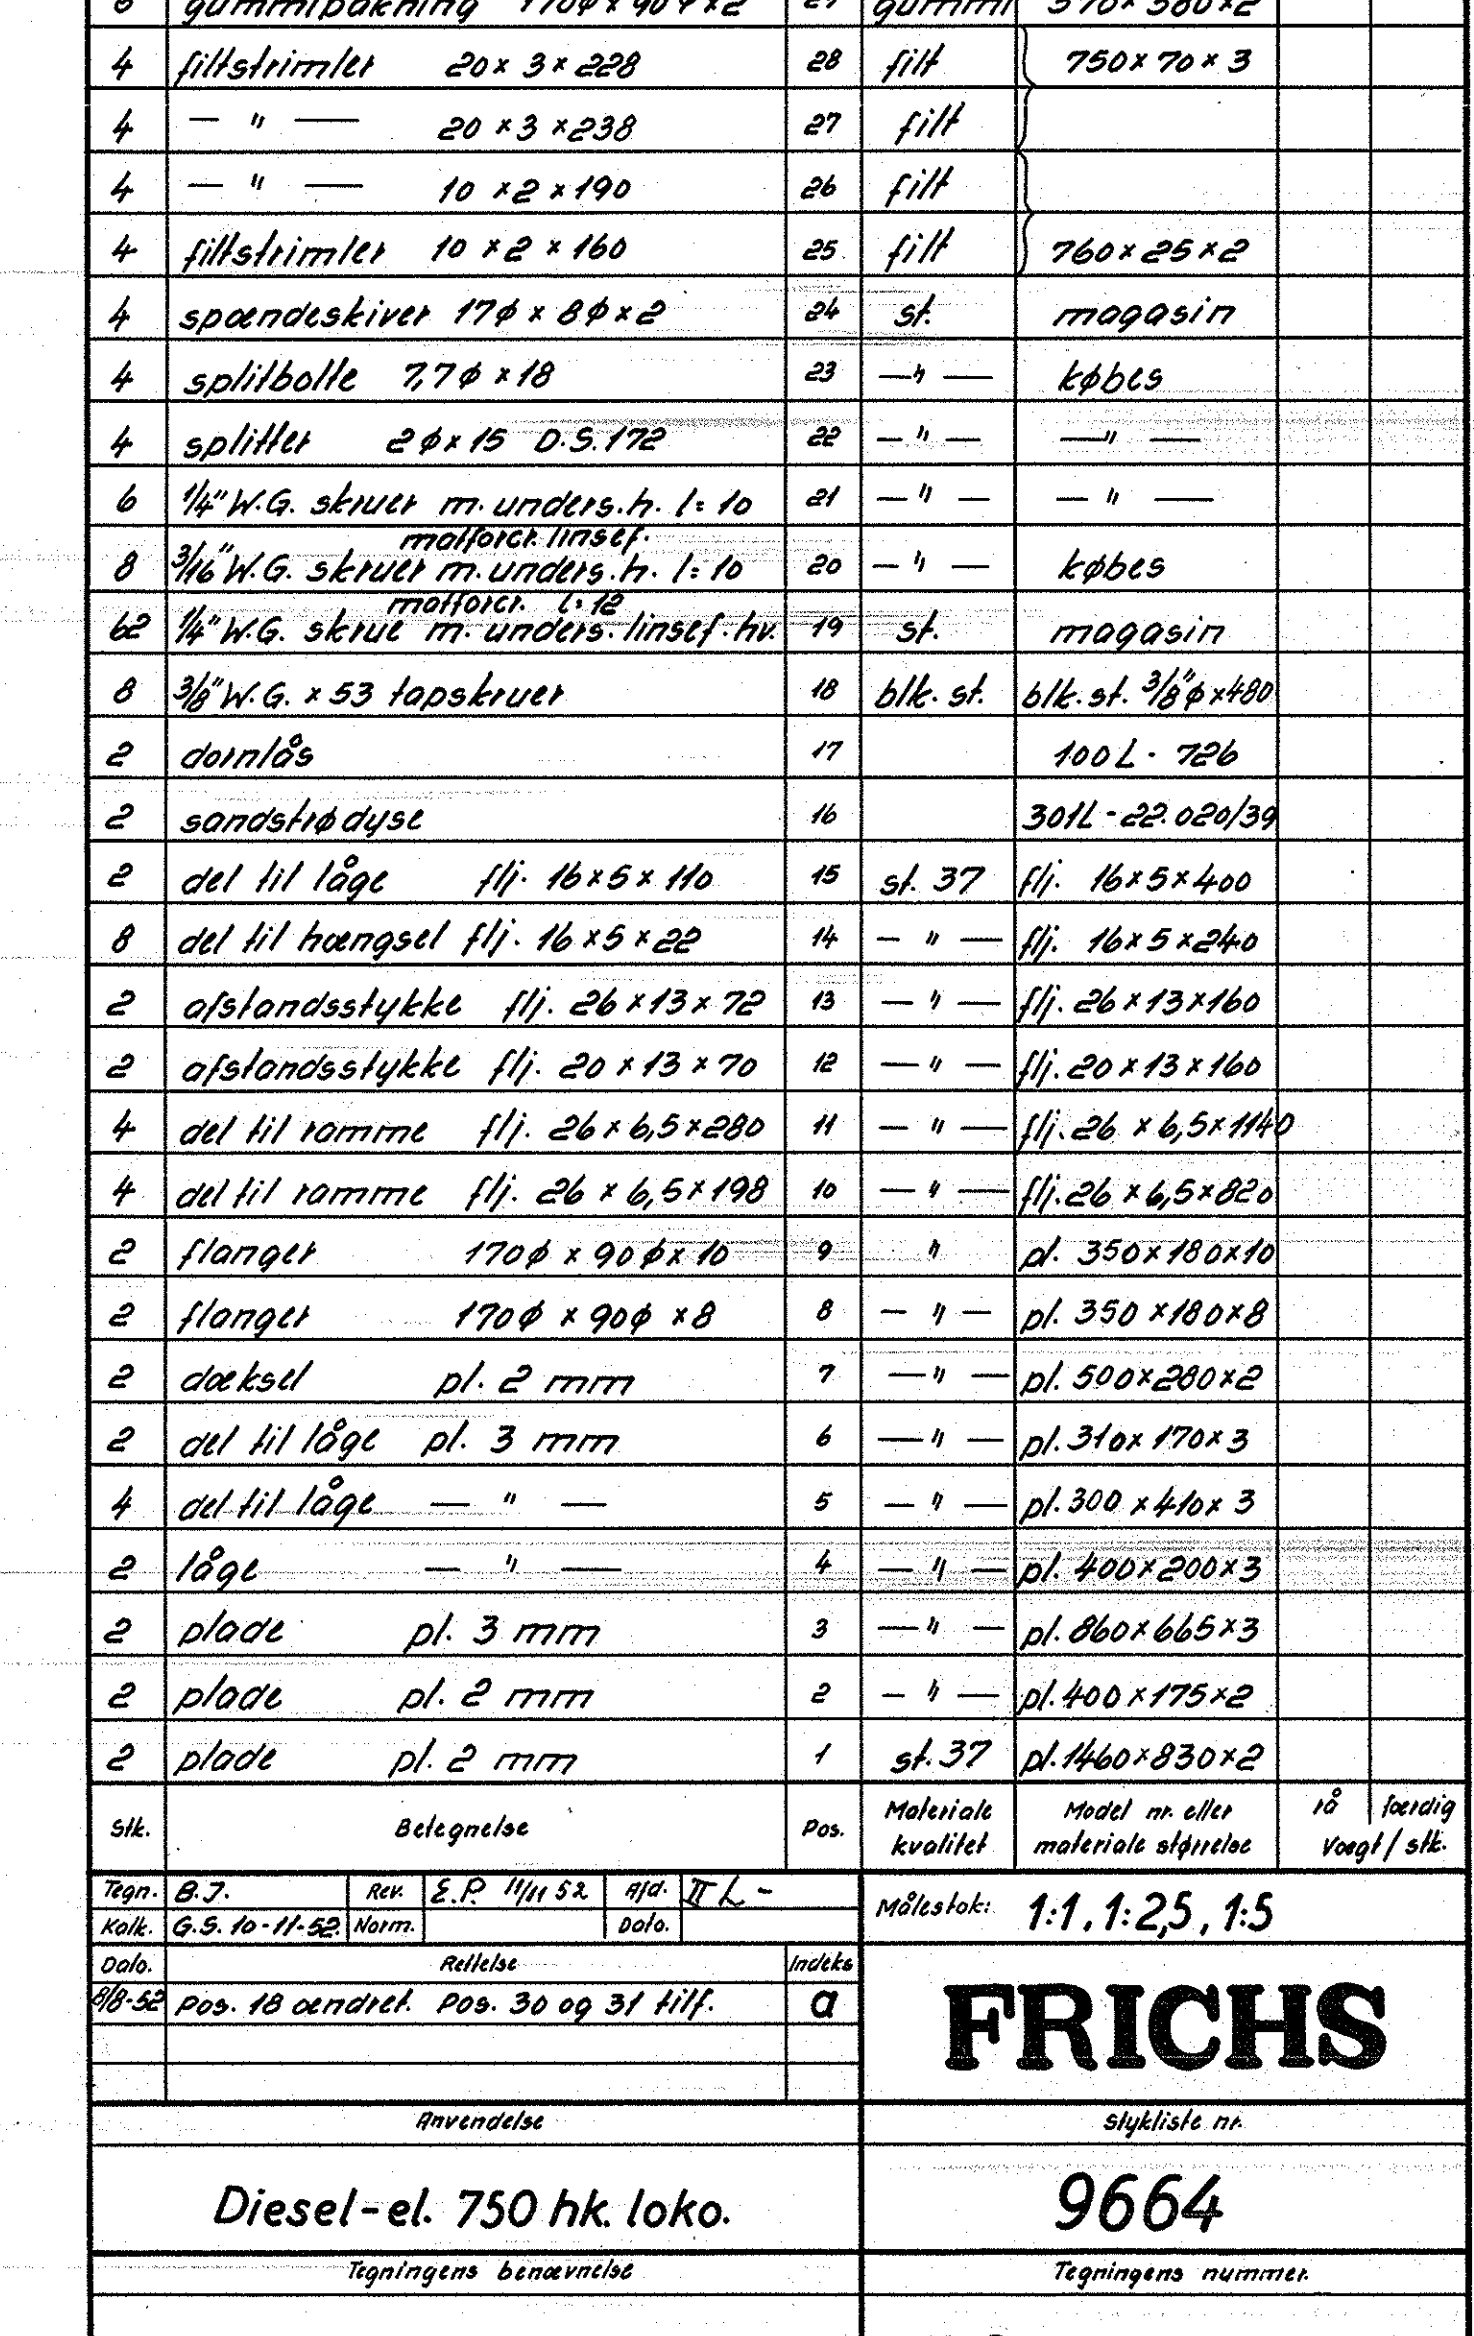 gummipakning 170φ×90φ×2 29 gummi 370×380×2
4 filtstrimler 20×3×228 28 filt 750×70×3
4 — " — 20×3×238 27 filt
4 — " — 10×2×190 26 filt
4 filtstrimler 10×2×160 25 filt 760×25×2
4 spændeskiver 17φ×8φ×2 24 st. magasin
4 splitbolte 7,7φ×18 23 — " — købes
4 splitter 2φ×15 D.S.172 22 — " — — " —
6 1/4" W.G. skruer m. unders.h. l=10 21 — " — — " —
matforcr. linsef.
8 3/16" W.G. skruer m. unders.h. l=10 20 — " — købes
matforcr. l=12
62 1/4" W.G. skrue m. unders. linsef. hv. 19 st. magasin
8 3/8" W.G. × 53 tapskruer 18 blk. st. blk. st. 3/8" φ×480
2 dornlås 17 100L - 726
2 sandstrødyse 16 301L - 22.020/39
2 del til låge flj. 16×5×110 15 st. 37 flj. 16×5×400
8 del til hængsel flj. 16×5×22 14 — " — flj. 16×5×240
2 afstandsstykke flj. 26×13×72 13 — " — flj. 26×13×160
2 afstandsstykke flj. 20×13×70 12 — " — flj. 20×13×160
4 del til ramme flj. 26×6,5×280 11 — " — flj. 26×6,5×1140
4 del til ramme flj. 26×6,5×198 10 — " — flj. 26×6,5×820
2 flanger 170φ×90φ×10 9 " pl. 350×180×10
2 flanger 170φ×90φ×8 8 — " — pl. 350×180×8
2 dæksel pl. 2 mm 7 — " — pl. 500×280×2
2 del til låge pl. 3 mm 6 — " — pl. 310×170×3
4 del til låge — " — 5 — " — pl. 300×410×3
2 låge — " — 4 — " — pl. 400×200×3
2 plade pl. 3 mm 3 — " — pl. 860×665×3
2 plade pl. 2 mm 2 — " — pl. 400×175×2
2 plade pl. 2 mm 1 st. 37 pl. 1460×830×2
Stk. Betegnelse Pos. Materiale kvalitet Model nr. eller materiale størrelse rå færdig Vægt / stk.
Tegn. B.J. Rev. E.P. 11/11 52 Afd. II L - Målestok: 1:1, 1:2,5, 1:5
Kalk. G.S. 10-11-52. Norm. Dato.
Dato. Rettelse Indeks
8/8-52 Pos. 18 ændret. Pos. 30 og 31 tilf. a
FRICHS
Anvendelse Stykliste nr.
Diesel-el. 750 hk. loko. 9664
Tegningens benævnelse Tegningens nummer.